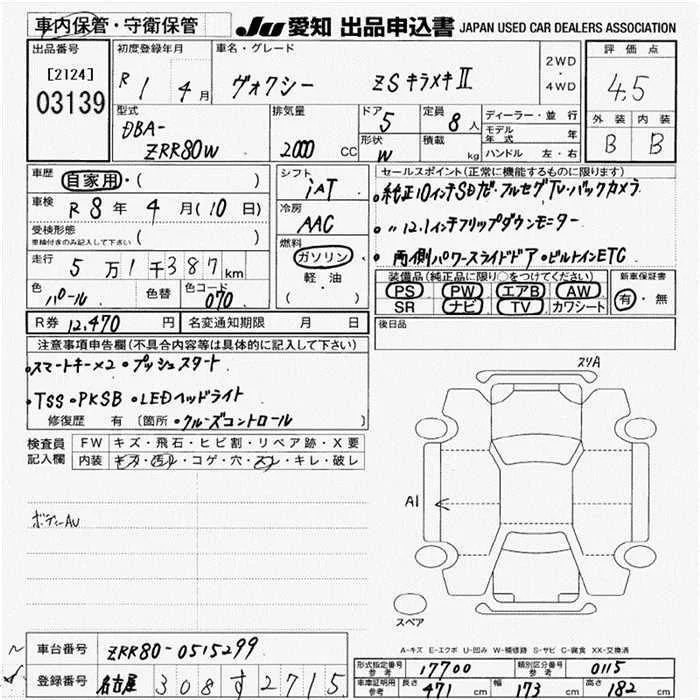 車内保管・守衛保管
JU 愛知 出品申込書 JAPAN USED CAR DEALERS ASSOCIATION
出品番号
[2124]
03139
初度登録年月
R 1 4月
車名・グレード
ヴォクシー ZSキラメキⅡ
2WD
・
4WD
評価点
4.5
外装 内装
B B
型式
DBA-
ZRR80W
排気量
2000 CC
ドア 5
形状 W
定員 8人
積載 kg
ディーラー・並行
モデル年式 年
ハンドル 左・右
車歴 自家用・( )
車検 R 8年 4月(10日)
受検形態
車検付きのみ記入して下さい ( )
走行 5万1千387km
色 パール 色替 色コード 070
シフト
iAT
冷房
AAC
燃料
ガソリン
軽・油
( )
セールスポイント(正常に機能するものに限ります)
・純正10インチSDナビ・フルセグTV・バックカメラ
・〃12.1インチフリップダウンモニター
・両側パワースライドドア・ビルトインETC
装備品(純正品に限り○をつけてください)
PS PW エアB AW
SR ナビ TV カワシート
新車保証書
有・無
R券 12,470円 名変通知期限 月 日
後日品
注意事項申告欄(不具合内容等は具体的に記入して下さい)
・スマートキー×2 ・プッシュスタート
・TSS・PKSB ・LEDヘッドライト
修復歴 有 [箇所・クルーズコントロール ]
検査員記入欄
FW キズ・飛石・ヒビ割・リペア跡・X要
内装 キズ・汚レ・コゲ・穴・スレ・キレ・破レ
ボディーAU
スリA
A1
スペア
A-キズ E-エクボ U-凹み W-補修跡 S-サビ C-腐食 XX-交換済
車台番号 ZRR80-0515299
登録番号 名古屋 308 す 2715
形式指定番号 参考 17700 類別区分番号 参考 0115
車庫証明用 参考 長さ 471cm 幅 173cm 高さ 182cm